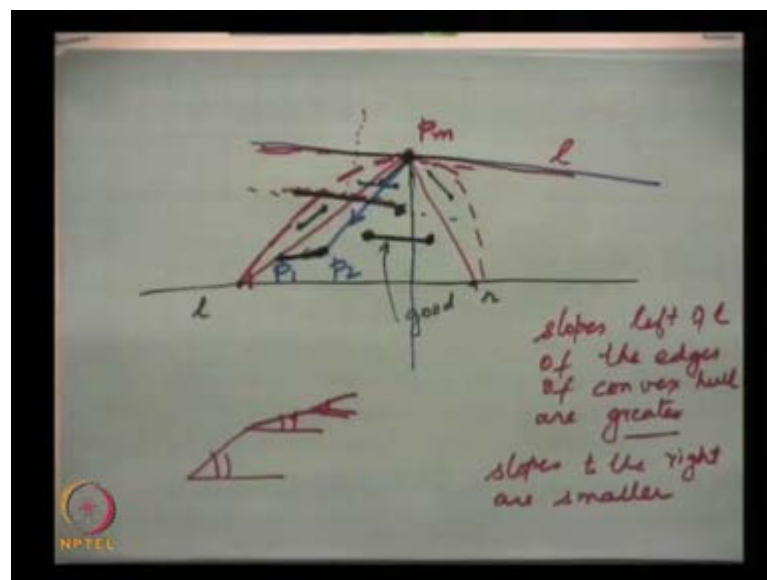 Pm
l
P1
P2
l
good
r
slopes left of l
of the edges
of convex hull
are greater
slopes to the right
are smaller
NPTEL